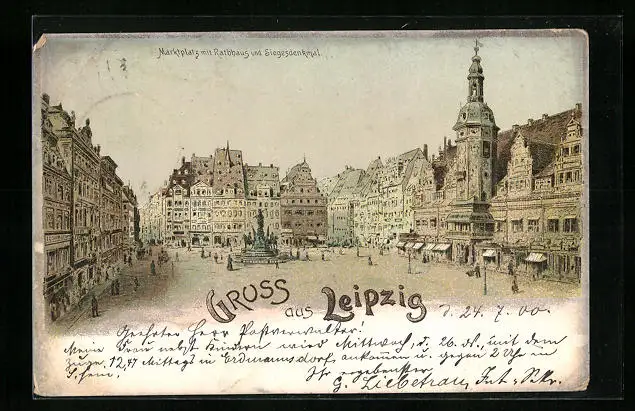 Marktplatz mit Rathhaus und Siegesdenkmal.
GRUSS aus Leipzig
d. 24. 7. 00.
Geehrter Herr Postverwalter!
Meine Frau nebst Kindern wird Mittwoch, d. 26. ds., mit dem
Zuge 12,47 Mittags in Erdmannsdorf, ankommen u. gegen 2 Uhr in
Ihr ergebenster
G. Liebetrau,